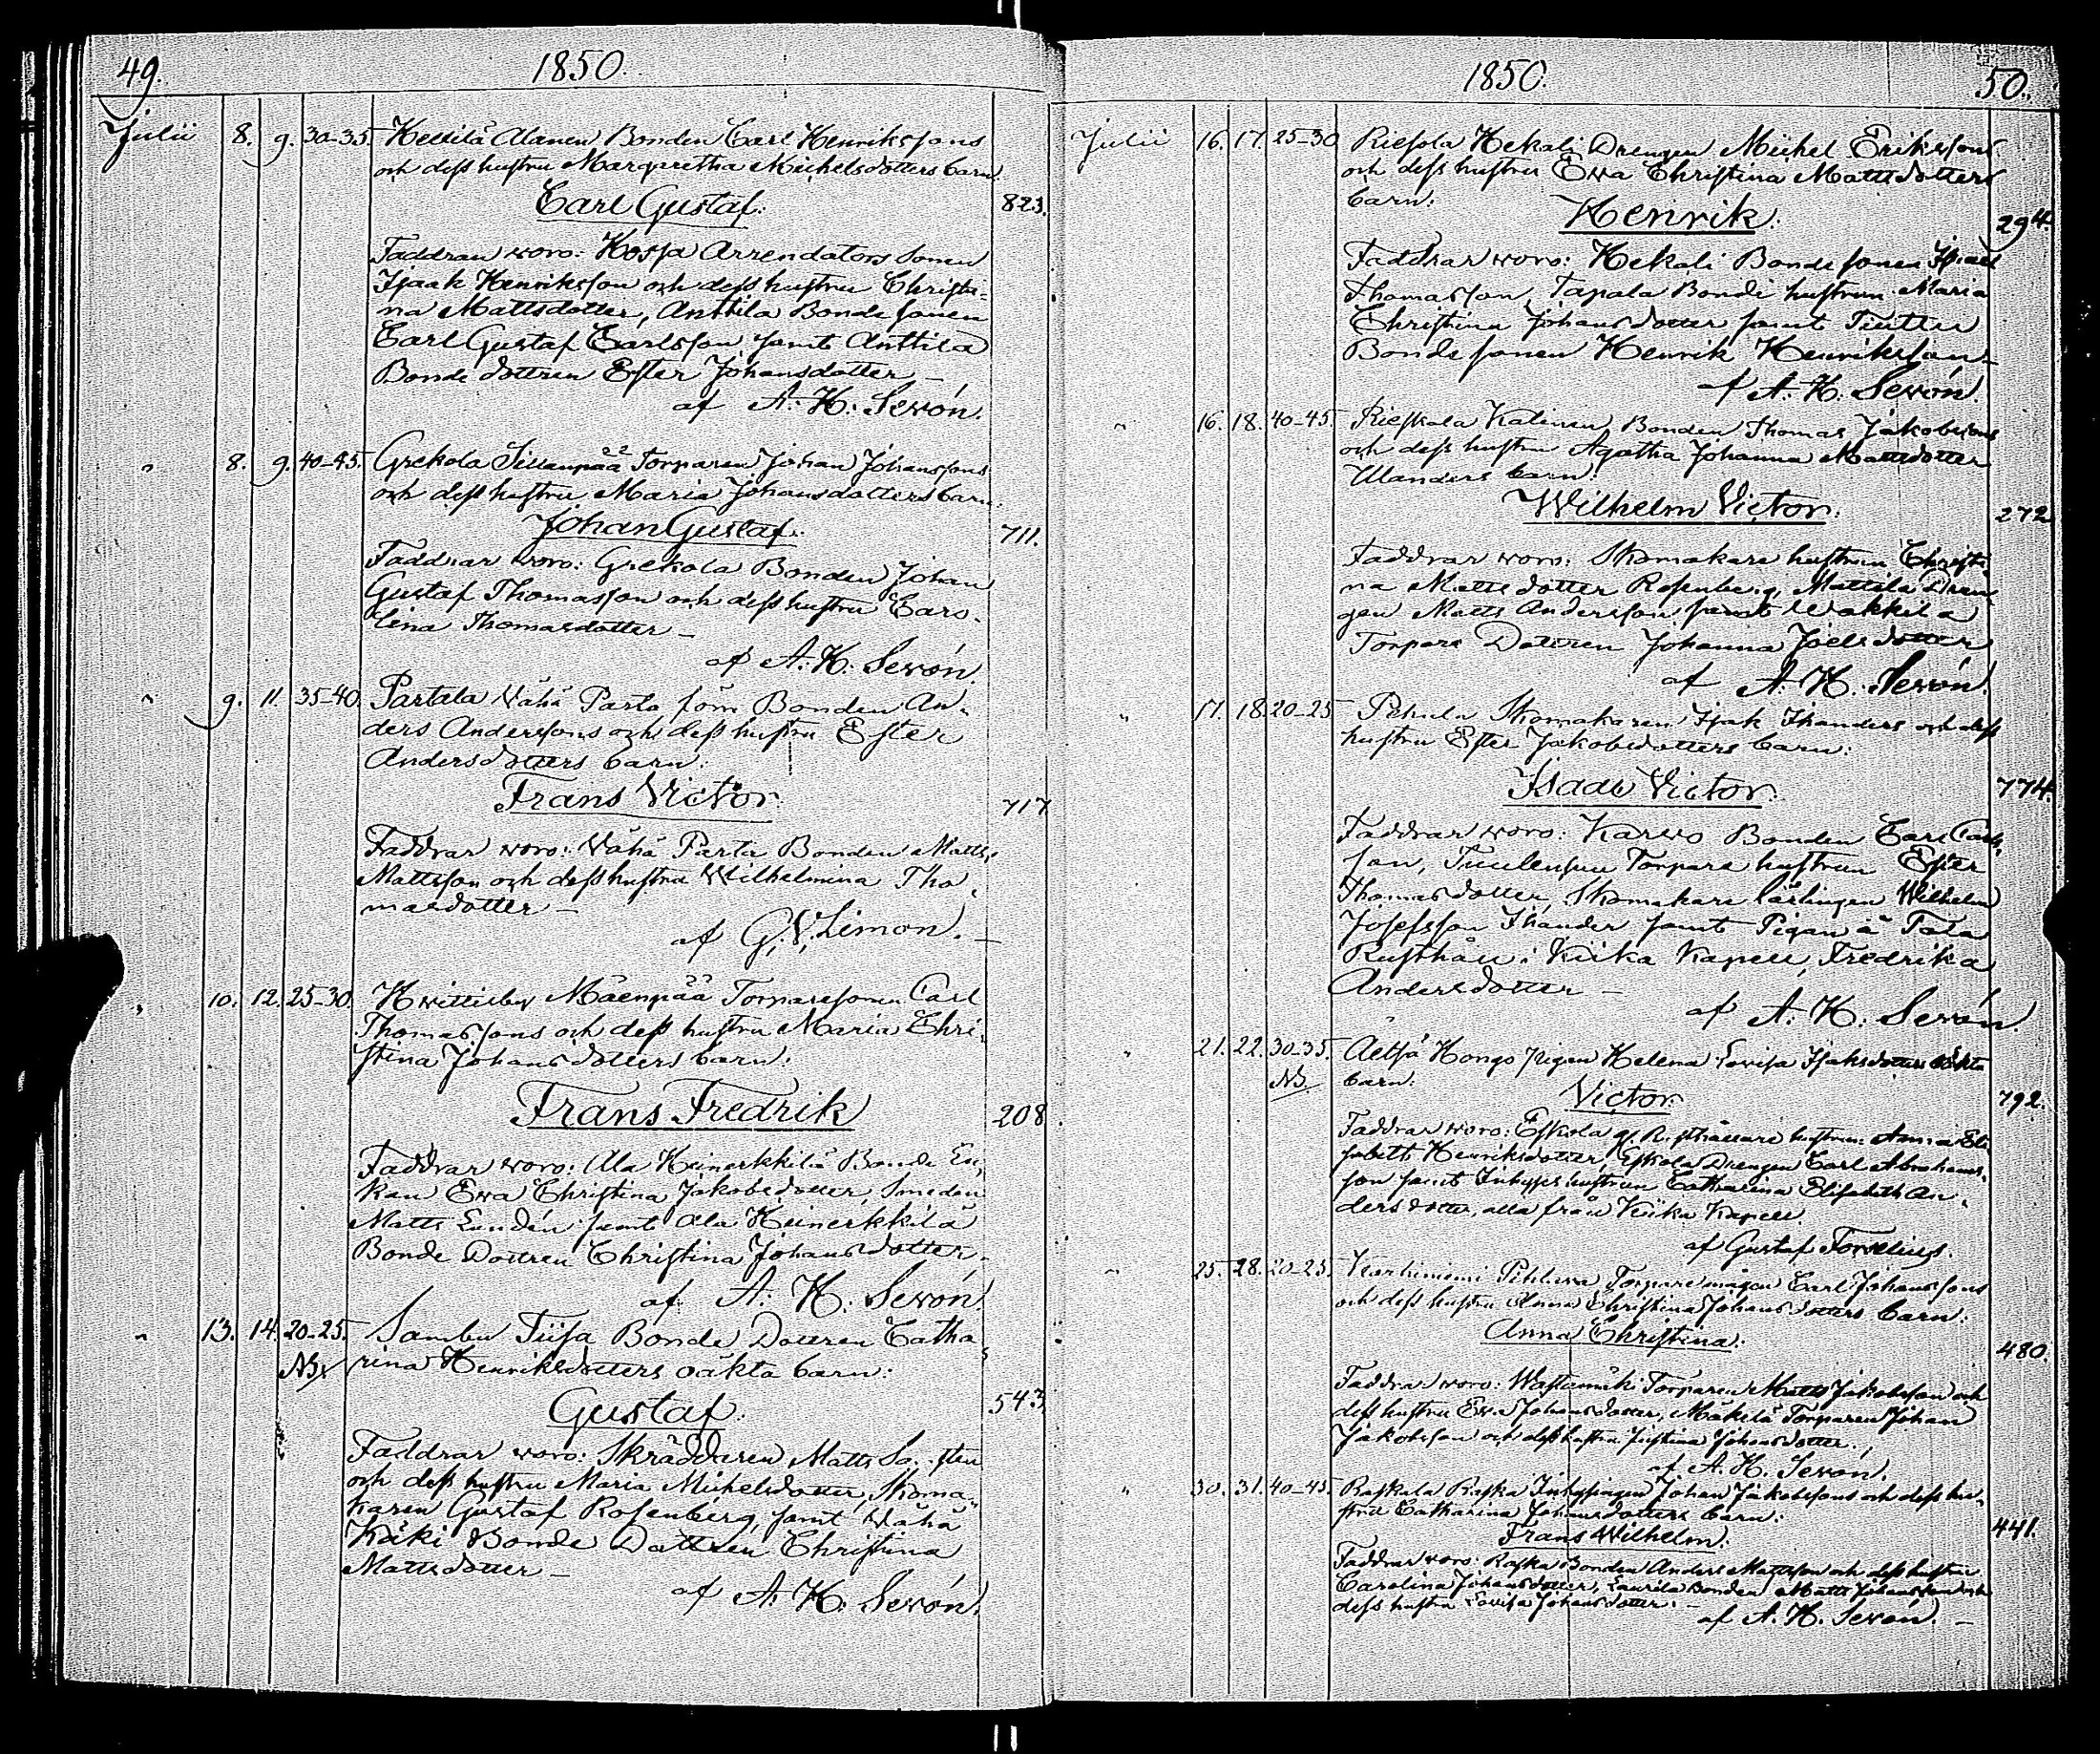 49. 1850.
Julii 8. 9. 30-35. Heikkilä Alanen Bonden Carl Henrikssons
och dess hustru Margaretha Michelsdotters barn
Carl Gustaf. 823.
Faddrar woro: Kossa Arrendators Sonen
Isaak Henriksson och dess hustru Christi-
na Mattsdotter, Anttila Bonde sonen
Carl Gustaf Carlsson samt Anttila
Bonde dottren Ester Johansdotter –
af A. H. Sewón.
" 8. 9. 40-45. Grekola Sillanpää Torparen Johan Johanssons
och dess hustru Maria Johansdotters barn.
Johan Gustaf. 711.
Faddrar woro: Grekola Bonden Johan
Gustaf Thomasson och dess hustru Caro-
lina Thomasdotter –
af A. H. Sewón.
" 9. 11. 35-40. Partala Vähä Parta förn Bonden An-
ders Anderssons och dess hustru Ester
Andersdotters barn:
Frans Victor. 717
Faddrar woro: Vähä Parta Bonden Matts
Mattsson och dess hustru Wilhelmina Tho-
masdotter –
af G. V. Limon. –
" 10. 12. 25-30. Hwittisby Mäenpää Torparesonen Carl
Thomassons och dess hustru Maria Chri-
stina Johansdotters barn:
Frans Fredrik 208.
Faddrar woro: Ala Heinerkkilä Bonde En-
kan Ewa Christina Jakobsdotter, Smeden
Matts Lundén samt Ala Heinerkkilä
Bonde Dottren Christina Johansdotter.
af A. H. Sewón.
" 13. 14. 20-25. Sambu Tiisa Bonde Dottren Catha-
NB. rina Henriksdotters oäkta barn:
Gustaf. 543.
Faddrar woro: Skräddaren Matts
och dess hustru Maria Michelsdotter, Skoma-
karen Gustaf Rosenberg, samt Wähä
Käki Bonde Dottren Christina
Mattsdotter –
af A. H. Sewón.
1850. 50.
Julii 16. 17. 25-30. Riesola Kekali Drengen Michel Erikssons
och dess hustru Ewa Christina Mattsdotters
barn:
Henrik. 294.
Faddrar woro: Kekali Bonde sonen
Thomasson, Tapala Bonde hustrun Maria
Christina Johansdotter samt
Bonde sonen Henrik Henriksson –
af A. H. Sewón.
" 16. 18. 40-45. Rieskala Bonden Thomas Jakobssons
och dess hustru Agatha Johanna Mattsdotter
Ulanders barn:
Wilhelm Victor. 272
Faddrar woro: Skomakare hustrun Christi-
na Mattsdotter Rosenberg, Mattila Dren-
gen Matts Andersson, samt Wakkila
Torpare Dottren Johanna Joelsdotter
af A. H. Sewón.
" 17. 18. 20-25 Skomakaren Isak Ihanders och dess
hustru Ester Jakobsdotters barn:
Isaac Victor. 774.
Faddrar woro: Karwo Bonden Carl Carls-
son, Torpare hustrun Ester
Thomasdotter, Skomakare lärlingen Wilhelm
Josefsson Ihander samt Pigan å Tala
Rusthåll i Kiika Kapell, Fredrika
Andersdotter –
af A. H. Sewón.
" 21. 22. 30-35. Äetsä Hongo pigan Helena Lovisa Isaksdotters oäkta
NB. barn:
Victor 792.
Faddrar woro: Eskola Rusthållare hustrun Anna Eli-
sabeth Henriksdotter, Eskola Drengen Carl Abrahams-
son samt Inhyses hustrun Catharina Elisabeth An-
dersdotter, alla från Kiika Kapell.
af Gustaf Forselius.
" 25. 28. 20-25. Karhiniemi Torpare mågen Carl Johanssons
och dess hustru Anna Christina Johansdotters barn:
Anna Christina. 480.
Faddrar woro: Wastamäki Torparen Matts Jakobsson och
dess hustru Ewa Johansdotter, Mäkelä Torparen Johan
Jakobsson och dess hustru Justina Johansdotter.
af A. H. Sewón.
" 30. 31. 40-45. Raskala Raska Inhysingen Johan Jakobssons och dess hu-
stru Catharina Johansdotters barn:
Frans Wilhelm. 441.
Faddrar woro: Raska Bonden Anders Mattsson och dess hustru
Carolina Johansdotter, Laurila Bonden Matts Johansson och
dess hustru Lovisa Johansdotter. –
af A. H. Sewón. –